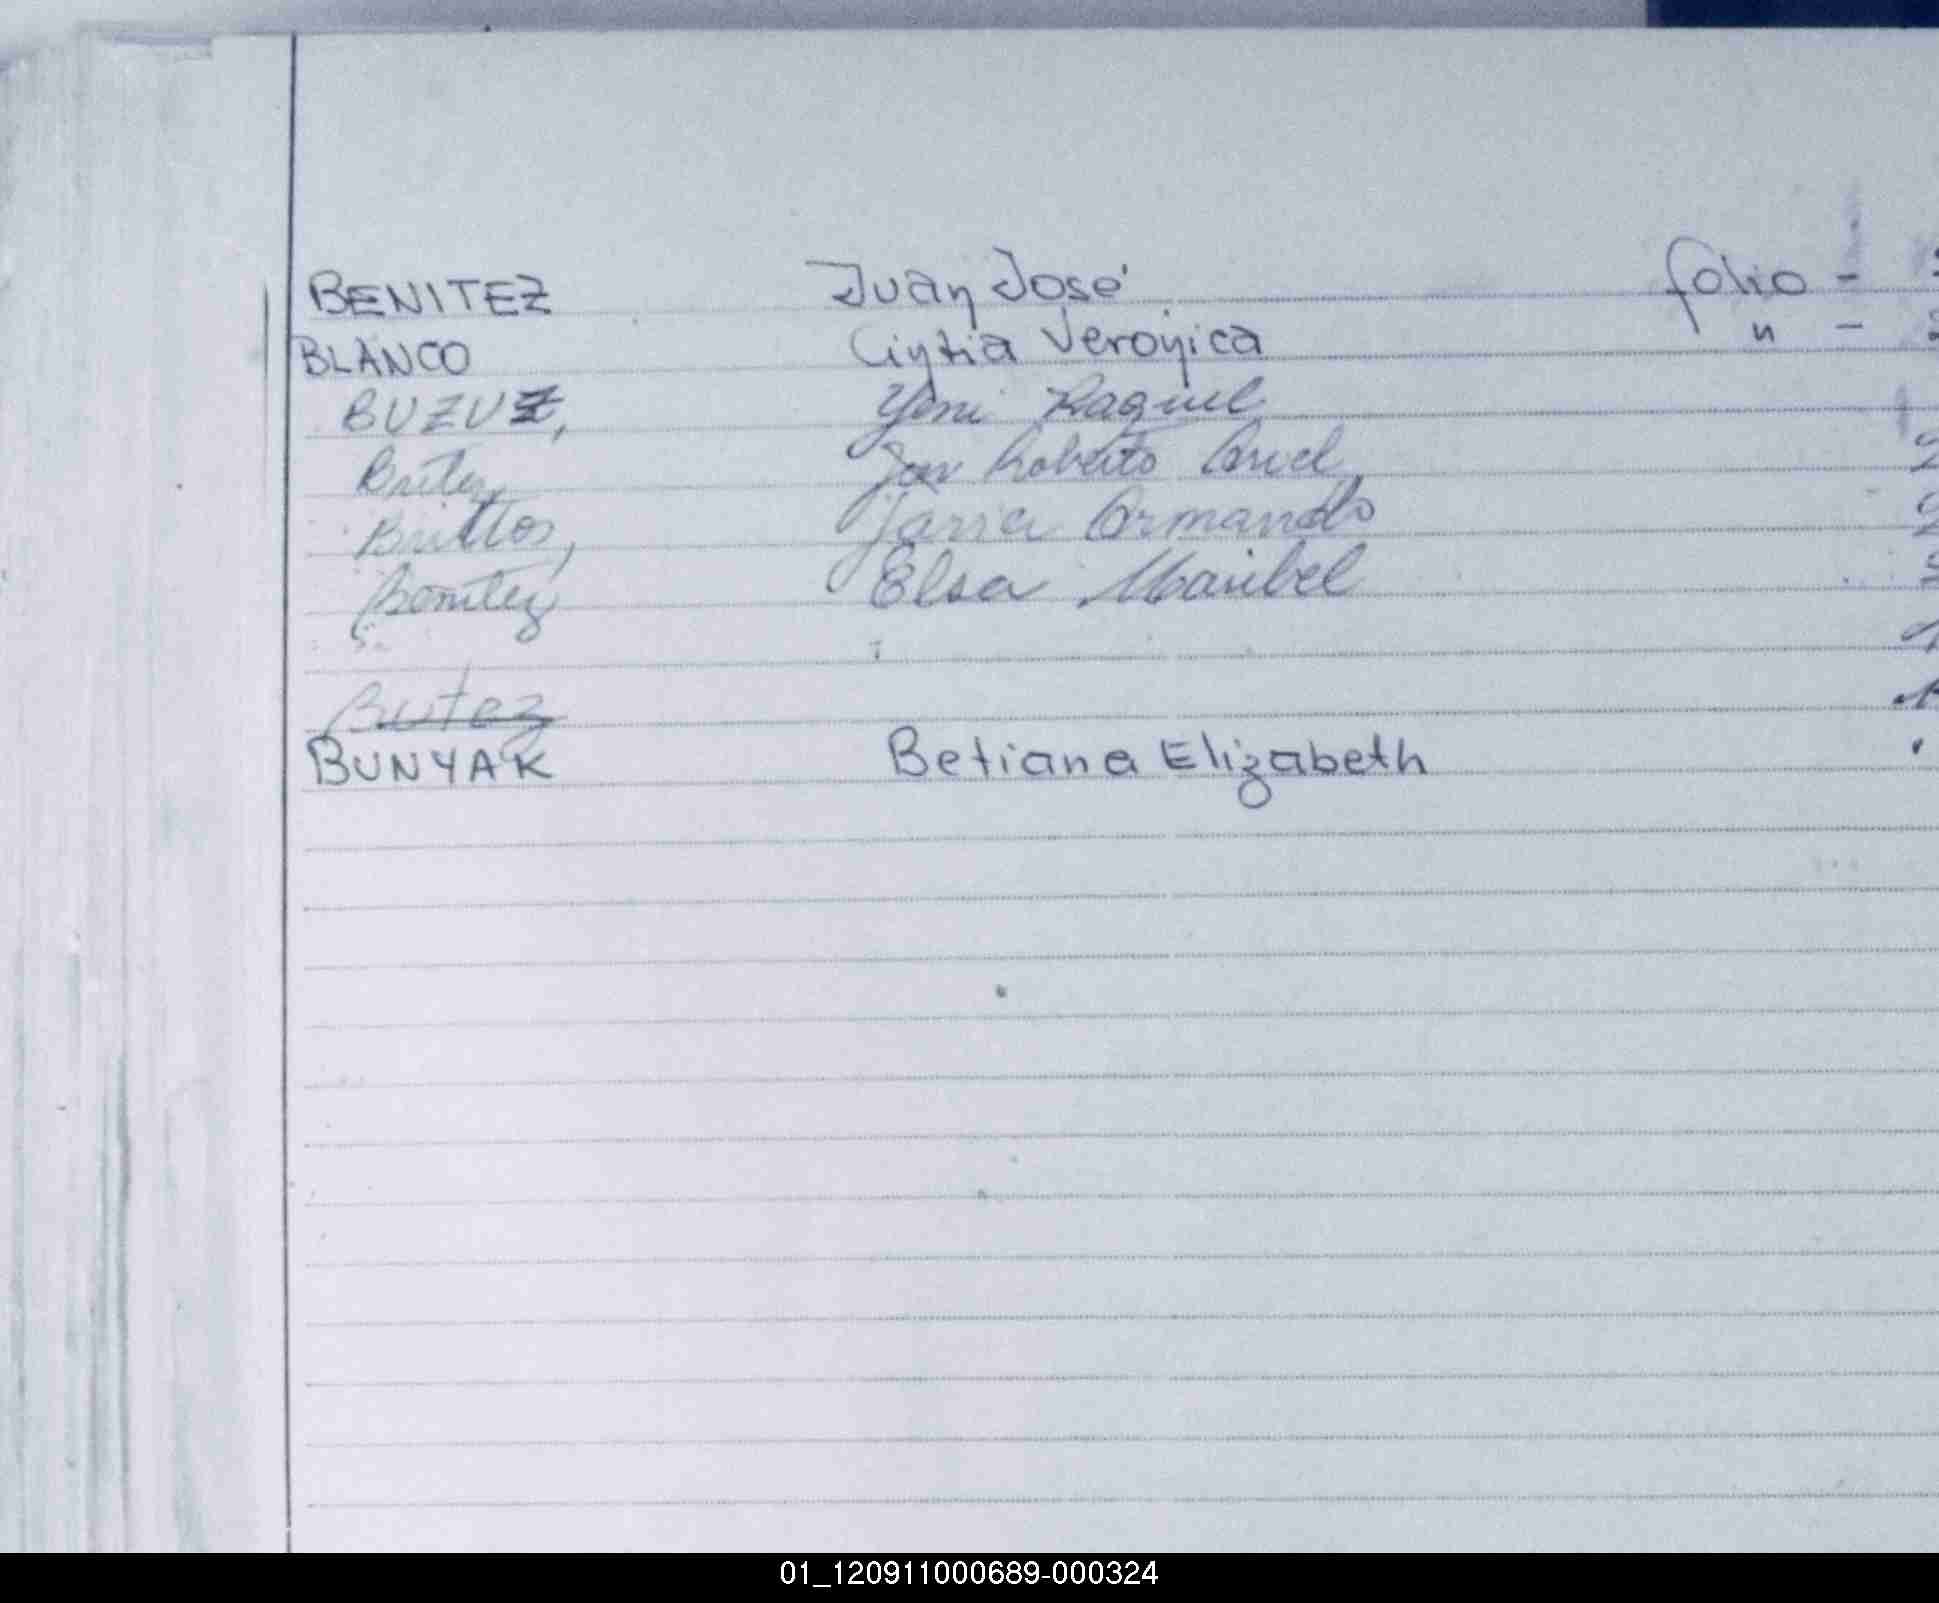 BENITEZ Juan José folio -
BLANCO Cintia Veronica " -
BUZUZ, Yeni Raquel
Britez Roberto Ariel
Brittos, Javier Armando
Benitez Elsa Maribel
BUNYAK Betiana Elizabeth
01_120911000689-000324